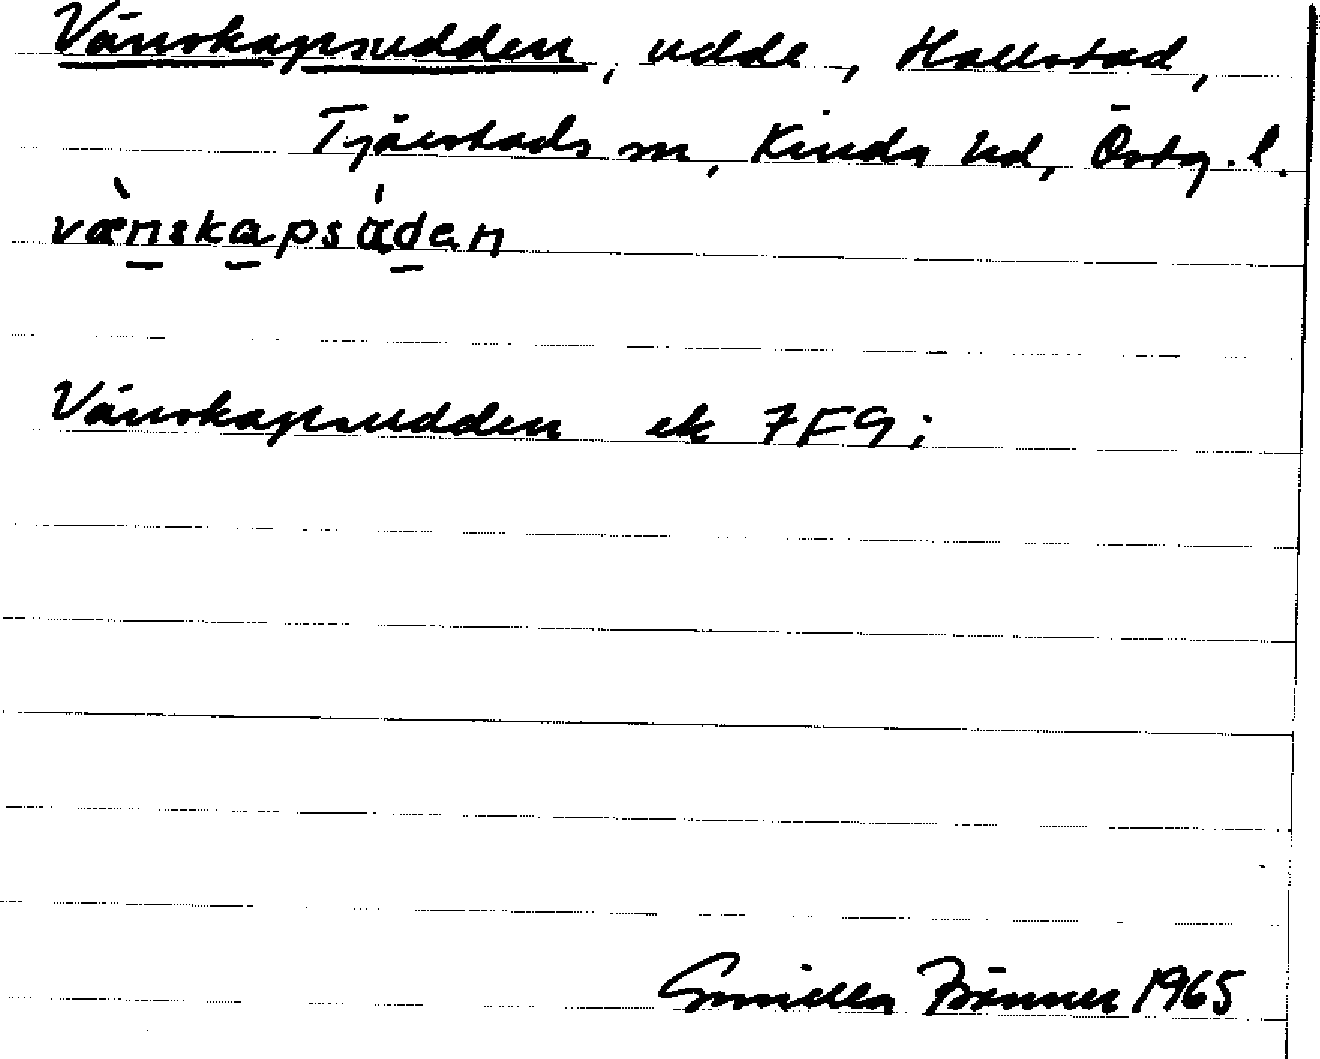 Vänskapsudden, udde, Hallstad,
Tjärstads sn, Kinda hd, Östg. l.
vænskapsɑden
Vänskapsudden ek 7F9i
Gunilla 1965